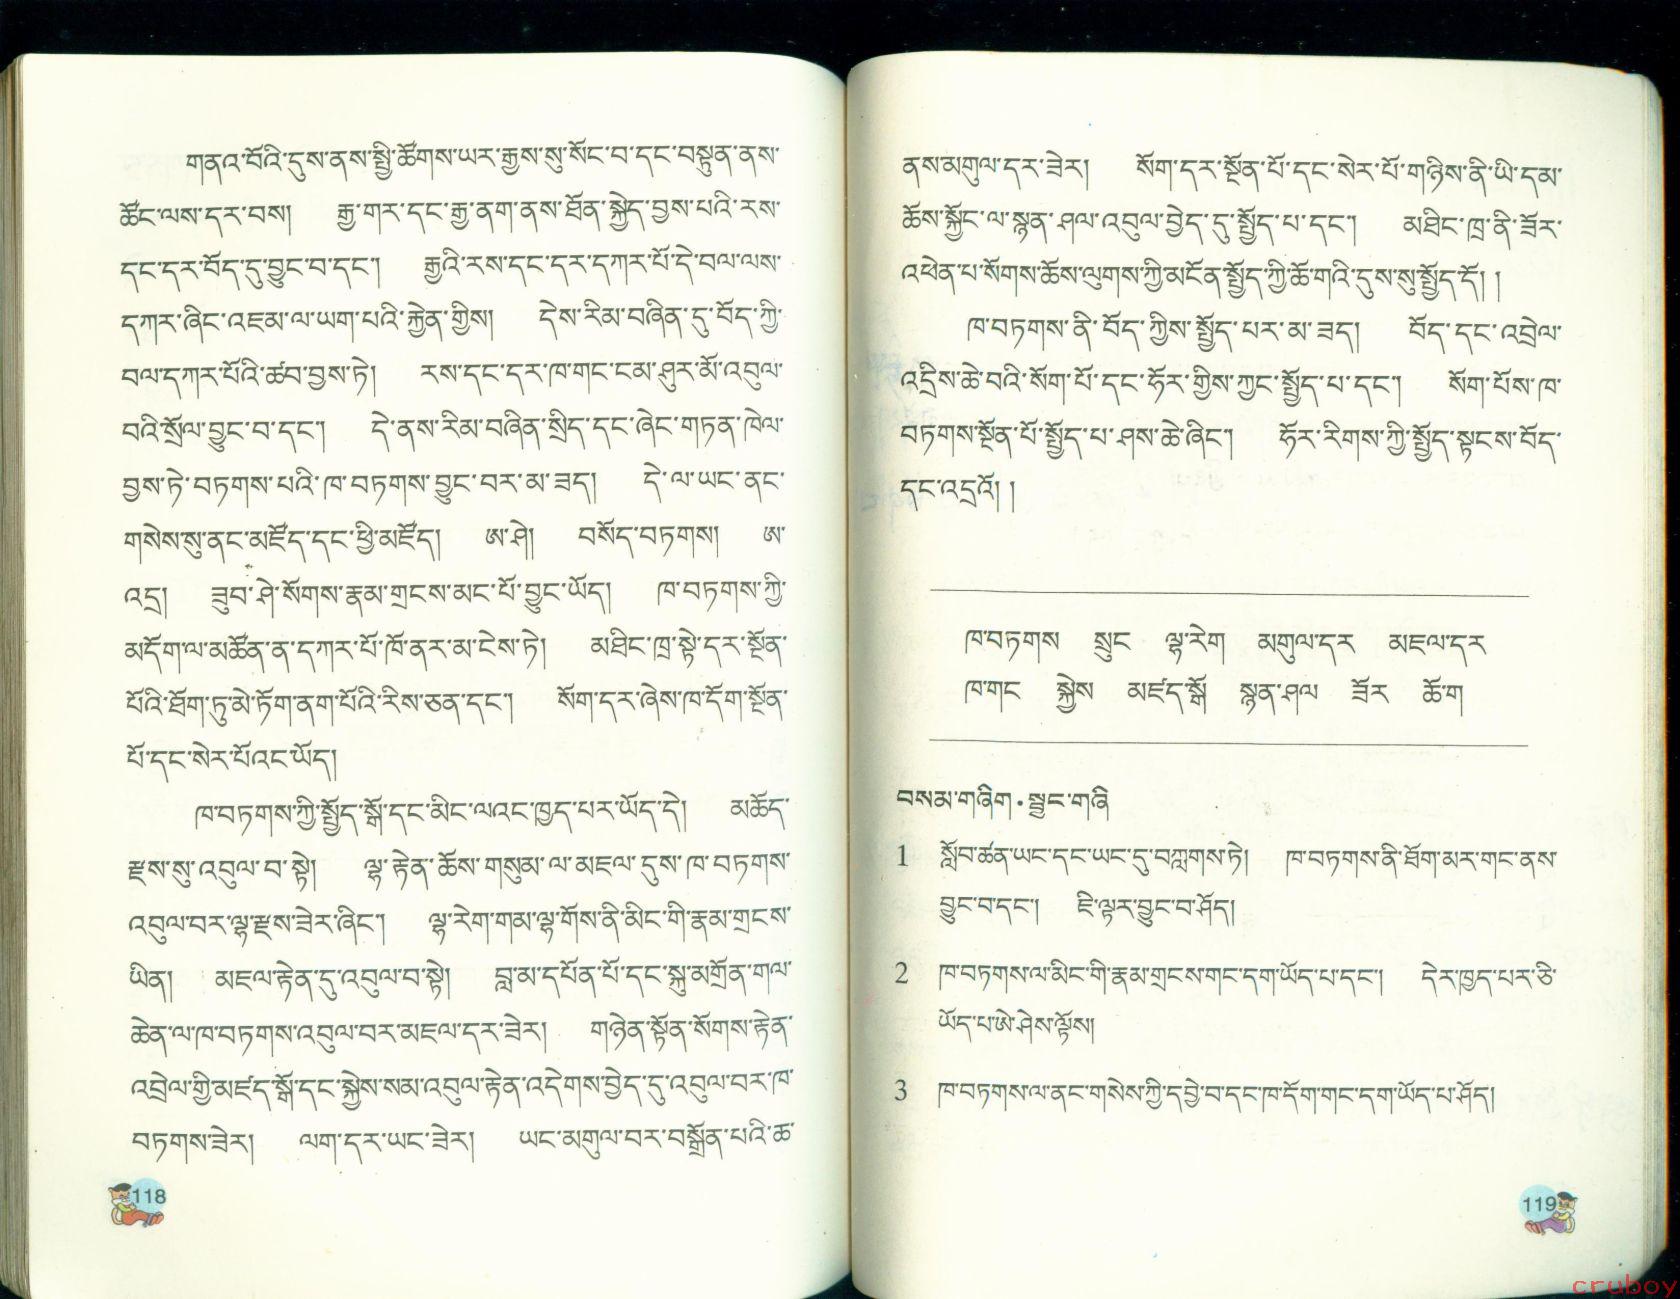 གནའ་བོའི་དུས་ནས་སྤྱི་ཚོགས་ཡར་རྒྱས་སུ་སོང་བ་དང་བསྟུན་ནས་
ཚོང་ལས་དར་བས། རྒྱ་གར་དང་རྒྱ་ནག་ནས་ཐོན་སྐྱེད་བྱས་པའི་རས་
དང་དར་བོད་དུ་བྱུང་བ་དང་། རྒྱའི་རས་དང་དར་དཀར་པོ་དེ་བལ་ལས་
དཀར་ཞིང་འཇམ་ལ་ཡག་པའི་རྐྱེན་གྱིས། དེས་རིམ་བཞིན་དུ་བོད་ཀྱི་
བལ་དཀར་པོའི་ཚབ་བྱས་ཏེ། རས་དང་དར་ཁ་གང་ངམ་ཤུར་མོ་འབུལ་
བའི་སྲོལ་བྱུང་བ་དང་། དེ་ནས་རིམ་བཞིན་སྲིད་དང་ཞེང་གཏན་ཁེལ་
བྱས་ཏེ་བཏགས་པའི་ཁ་བཏགས་བྱུང་བར་མ་ཟད། དེ་ལ་ཡང་ནང་
གསེས་སུ་ནང་མཛོད་དང་ཕྱི་མཛོད། ཨ་ཤེ། བསོད་བཏགས། ཨ་
འདྲ། ཟུབ་ཤེ་སོགས་རྣམ་གྲངས་མང་པོ་བྱུང་ཡོད། ཁ་བཏགས་ཀྱི་
མདོག་ལ་མཚོན་ན་དཀར་པོ་ཁོ་ནར་མ་ངེས་ཏེ། མཐིང་ཁྲ་སྟེ་དར་སྔོན་
པོའི་ཐོག་ཏུ་མེ་ཏོག་ནག་པོའི་རིས་ཅན་དང་། སོག་དར་ཞེས་ཁ་དོག་སྔོན་
པོ་དང་སེར་པོའང་ཡོད།
ཁ་བཏགས་ཀྱི་སྤྱོད་སྒོ་དང་མིང་ལའང་ཁྱད་པར་ཡོད་དེ། མཆོད་
རྫས་སུ་འབུལ་བ་སྟེ། ལྷ་རྟེན་ཆོས་གསུམ་ལ་མཇལ་དུས་ཁ་བཏགས་
འབུལ་བར་ལྷ་རྫས་ཟེར་ཞིང་། ལྷ་རེག་གམ་ལྷ་གོས་ནི་མིང་གི་རྣམ་གྲངས་
ཡིན། མཇལ་རྟེན་དུ་འབུལ་བ་སྟེ། བླ་མ་དཔོན་པོ་དང་སྐུ་མགྲོན་གལ་
ཆེན་ལ་ཁ་བཏགས་འབུལ་བར་མཇལ་དར་ཟེར། གཉེན་སྟོན་སོགས་རྟེན་
འབྲེལ་གྱི་མཛད་སྒོ་དང་སྐྱེས་སམ་འབུལ་རྟེན་འདེགས་བྱེད་དུ་འབུལ་བར་ཁ་
བཏགས་ཟེར། ལག་དར་ཡང་ཟེར། ཡང་མགུལ་བར་བསྒྲོན་པའི་ཆ་
118
ནས་མགུལ་དར་ཟེར། སོག་དར་སྔོན་པོ་དང་སེར་པོ་གཉིས་ནི་ཡི་དམ་
ཆོས་སྐྱོང་ལ་སྙན་ཤལ་འབུལ་བྱེད་དུ་སྤྱོད་པ་དང་། མཐིང་ཁྲ་ནི་ཟོར་
འཕེན་པ་སོགས་ཆོས་ལུགས་ཀྱི་མངོན་སྤྱོད་ཀྱི་ཆོ་གའི་དུས་སུ་སྤྱོད་དོ། །
ཁ་བཏགས་ནི་བོད་ཀྱིས་སྤྱོད་པར་མ་ཟད། བོད་དང་འབྲེལ་
འདྲིས་ཆེ་བའི་སོག་པོ་དང་ཧོར་གྱིས་ཀྱང་སྤྱོད་པ་དང་། སོག་པོས་ཁ་
བཏགས་སྔོན་པོ་སྤྱོད་པ་ཤས་ཆེ་ཞིང་། ཧོར་རིགས་ཀྱི་སྤྱོད་སྟངས་བོད་
དང་འདྲའོ། །
ཁ་བཏགས སྲུང ལྷ་རེག མགུལ་དར མཇལ་དར
ཁ་གང སྐྱེས མཛད་སྒོ སྙན་ཤལ ཟོར ཆོ་ག
བསམ་གཞིག·སྦྱང་གཞི
1 སློབ་ཚན་ཡང་དང་ཡང་དུ་བཀླགས་ཏེ། ཁ་བཏགས་ནི་ཐོག་མར་གང་ནས་
བྱུང་བ་དང་། ཇི་ལྟར་བྱུང་བ་ཤོད།
2 ཁ་བཏགས་ལ་མིང་གི་རྣམ་གྲངས་གང་དག་ཡོད་པ་དང་། དེར་ཁྱད་པར་ཅི་
ཡོད་པ་ཨེ་ཤེས་ལྟོས།
3 ཁ་བཏགས་ལ་ནང་གསེས་ཀྱི་དབྱེ་བ་དང་ཁ་དོག་གང་དག་ཡོད་པ་ཤོད།
119
cruboy